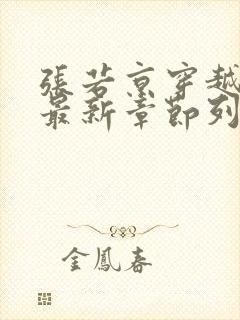 張若京穿越
最新章節列
金鳳春